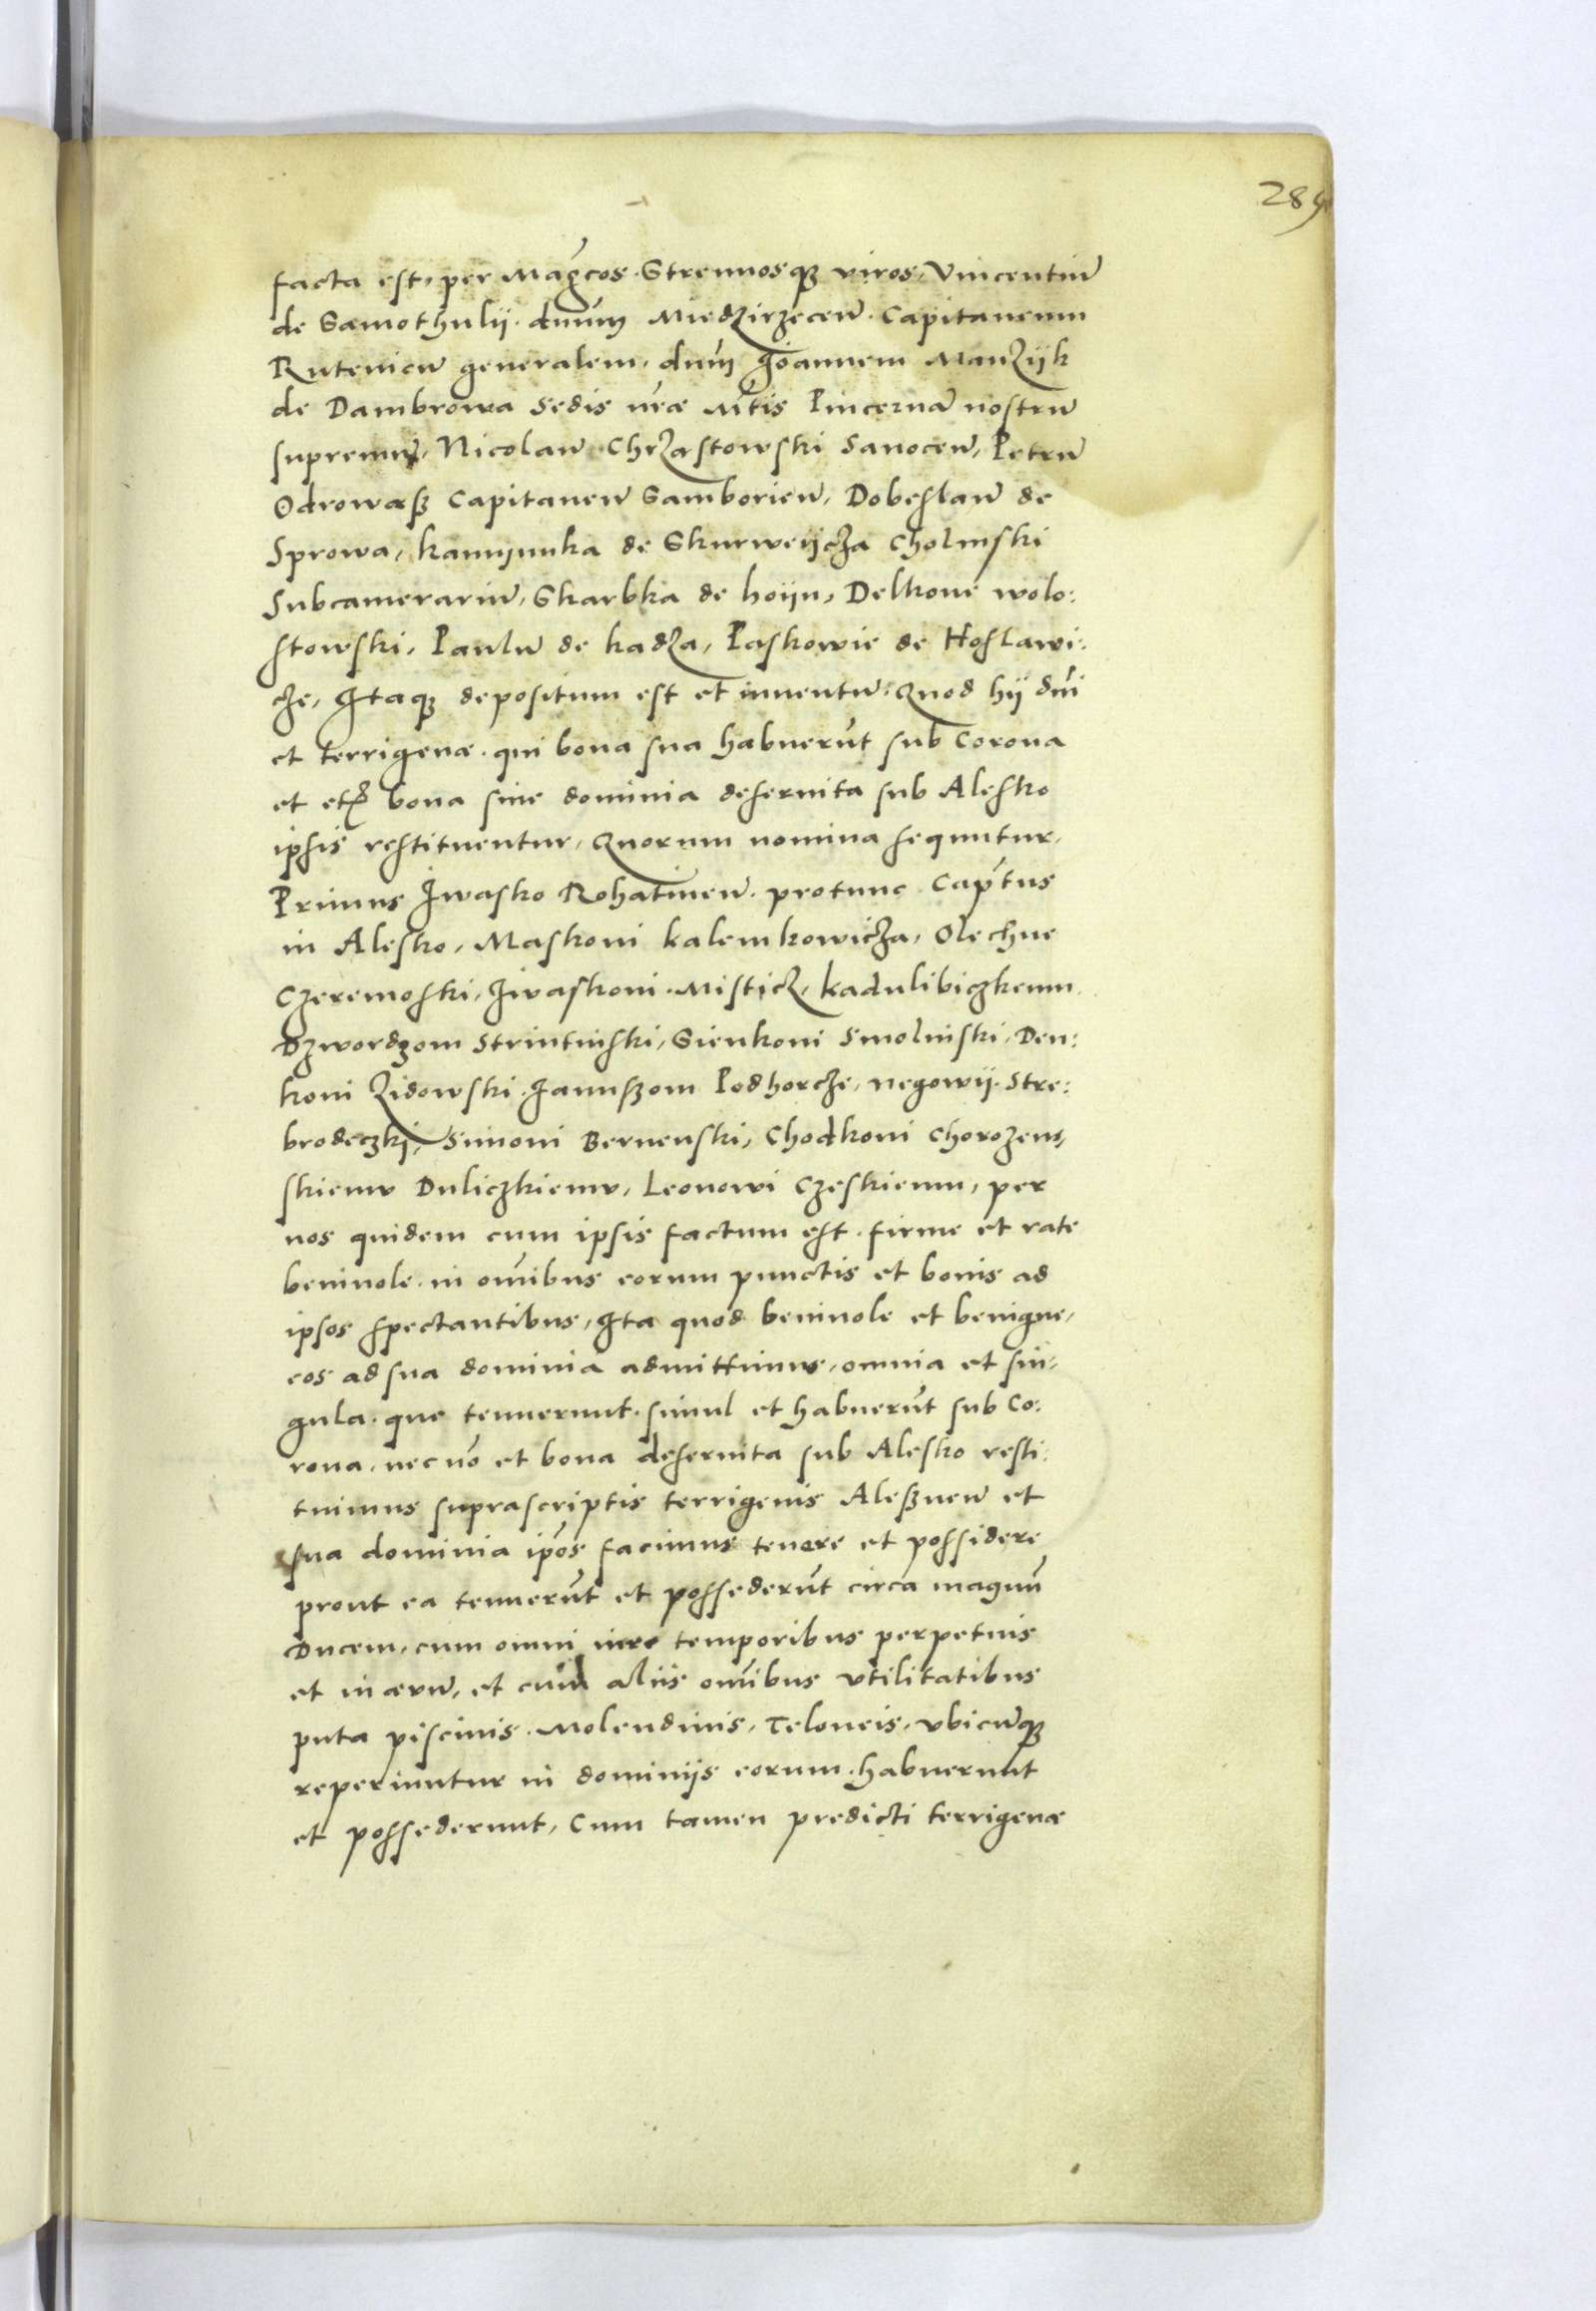 289
facta est, per Mãgcos. Strenuosq3 viros, Vincentiũ
de Samothulij. dnũm Miedzirzeceñ. Capitaneum
Ruteniceñ generalem, dnm̃ Joannem Manzijk
de Dambrowa Sedis nr̃æ M̃tis Pincernã nostrũ
supremũ, Nicolaũ Chrzastowski Sanoceñ, Petrũ
Odrowæsz Capitaneũ Samborieñ, Dobeslaũ de
Sprowa, kamijnnka de Skurweijcza Cholmski
Subcamerariũ, Skarbka de hoijn, Delkone wolo:
stowski, Paulũ de kadza, Paskowie de Hoslawi:
cze, Itaq3 depositum est et inuentũ. Quod hij dñi
et terrigenæ. qui bona sua habuerũt sub Corona
et et̃ bona siue dominia deseruita sub Alesko
ipsis restituentur, Quorum nomina sequntur,
Primus Iwasko Rohatineñ. protunc Cap̃tus
in Alesko, Maskoni kalemkowicza, Olechne
Czeremoski, Iwaskoni. Misticz, kadulibiczkemu
Dzwordzom Strintinski, Sienkoni Smolniski, Den:
koni Zidowski. Januszom Podhorcze, negowij. Stre:
brodeczki, Simoni Bernenski, Chodkoni Chorozens,
skiemv Duliczkiemv, Leonowi Czeskiemu, per
nos quidem cum ipsis factum est. firme et rate
beniuole. in om̃ibus eorum punctis et bonis ad
ipsos spectantibus, Ita quod beniuole et benigne,
eos ad sua dominia admittimus, omnia et sin:
gula. que tenuerunt. simul et habuerũt sub Co:
rona, nec nõ et bona deseruita sub Alesko resti:
tuimus suprascriptis terrigenis Aleszneñ et
sua dominia ip̃os facimus tenere et possidere
prout ea tenuerũt et possederũt circa magnũ
Ducem, cum omni iure temporibus perpetuis
et in æuũ, et cum aliis om̃ibus vtilitatibus
puta piscinis. Molendinis, Teloneis, vbicũq3
reperiuntur in dominijs eorum. habuerunt
et possederunt, Cum tamen predicti terrigenæ